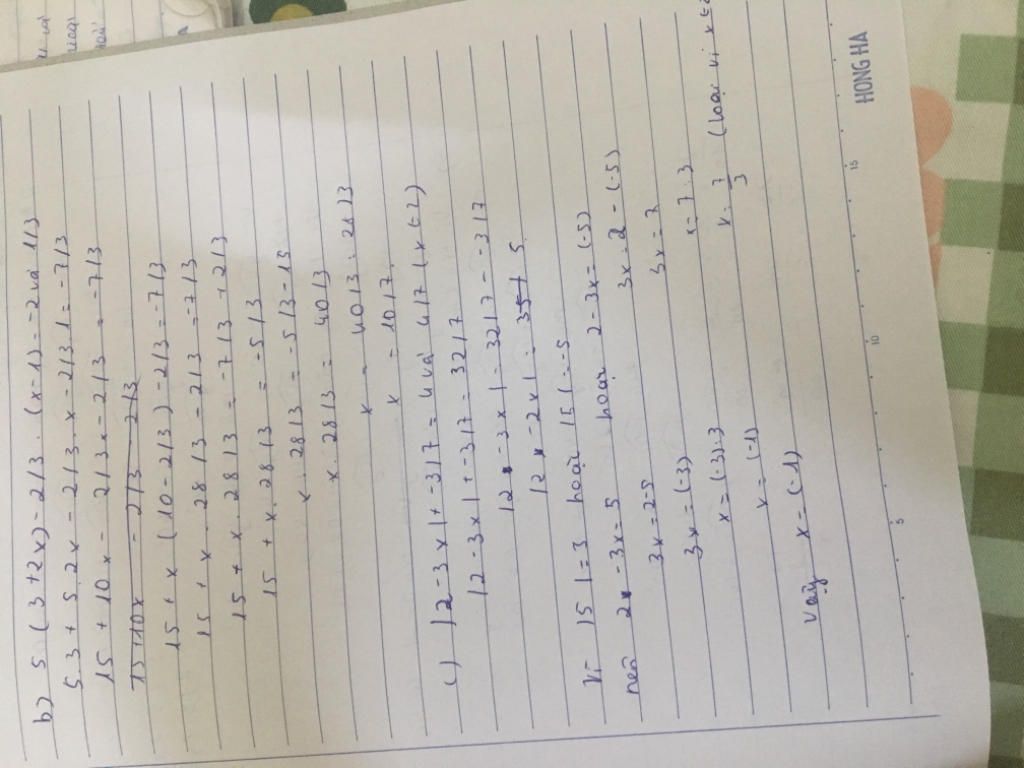 b) 5. (3+2x) - 2/3 . (x-1) = -2 và 1/3
5.3 + 5.2x - 2/3.x - 2/3.1 = -7/3
15 + 10x - 2/3x - 2/3 = -7/3
15+10x - 2/3 - 2/3
15 + x (10 - 2/3) - 2/3 = -7/3
15 + x . 28/3 - 2/3 = -7/3
15 + x . 28/3 = -7/3 - 2/3
15 + x . 28/3 = -5/3
x . 28/3 = -5/3 - 15
x . 28/3 = 40/3
x = 40/3 : 28/3
x = 10/7
c) |2-3x| + -3/7 = 4 và 4/7 (x∈Z)
|2-3x| + -3/7 = 32/7
|2-3x| = 32/7 - -3/7
|2x-2x| = 35/ 5
Vì |5| = 3 hoặc |5| = -5
nên 2x-3x=5 hoặc 2-3x=(-5)
3x=2-5 3x=2-(-5)
3x=(-3) 3x=7
x=(-3):3 x=7:3
x=(-1) x=7/3 (loại vì x∈Z
Vậy x=(-1)
5 10 15
HONG HA